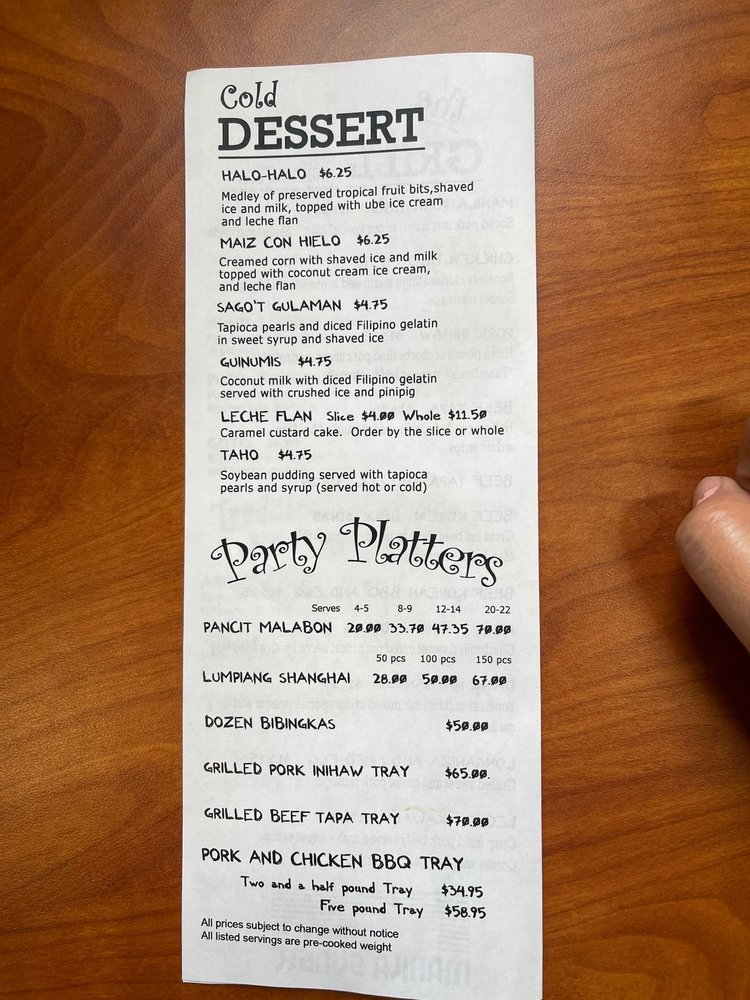 Cold
DESSERT
HALO-HALO $6.25
Medley of preserved tropical fruit bits,shaved
ice and milk, topped with ube ice cream
and leche flan
MAIZ CON HIELO $6.25
Creamed corn with shaved ice and milk
topped with coconut cream ice cream,
and leche flan
SAGO'T GULAMAN $4.75
Tapioca pearls and diced Filipino gelatin
in sweet syrup and shaved ice
GUINUMIS $4.75
Coconut milk with diced Filipino gelatin
served with crushed ice and pinipig
LECHE FLAN Slice $4.00 Whole $11.50
Caramel custard cake. Order by the slice or whole
TAHO $4.75
Soybean pudding served with tapioca
pearls and syrup (served hot or cold)
Party Platters
Serves 4-5 8-9 12-14 20-22
PANCIT MALABON 20.00 33.70 47.35 70.00
50 pcs 100 pcs 150 pcs
LUMPIANG SHANGHAI 28.00 50.00 67.00
DOZEN BIBINGKAS $50.00
GRILLED PORK INIHAW TRAY $65.00.
GRILLED BEEF TAPA TRAY $70.00
PORK AND CHICKEN BBQ TRAY
Two and a half pound Tray $34.95
Five pound Tray $58.95
All prices subject to change without notice
All listed servings are pre-cooked weight